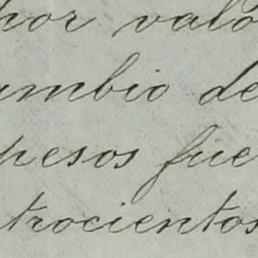 por valo
ambio de
pesos fue
trocientos